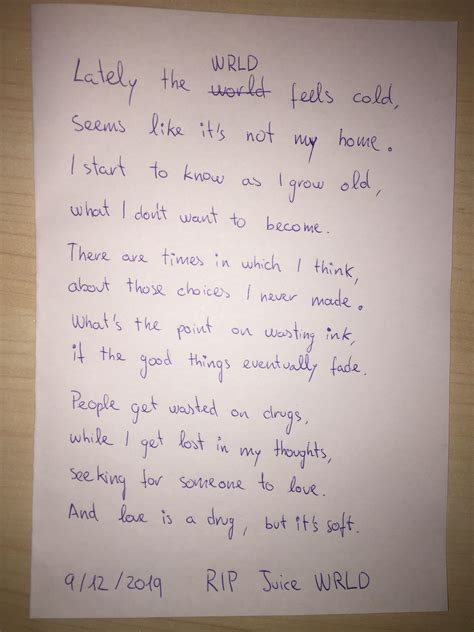 WRLD
Lately the world feels cold,
Seems like it's not my home.
I start to know as I grow old,
what I don't want to become.
There are times in which I think,
about those choices I never made.
What's the point on wasting ink,
if the good things eventually fade.
People get wasted on drugs,
while I get lost in my thoughts,
seeking for someone to love.
And love is a drug, but it's soft.
9/12/2019 RIP Juice WRLD